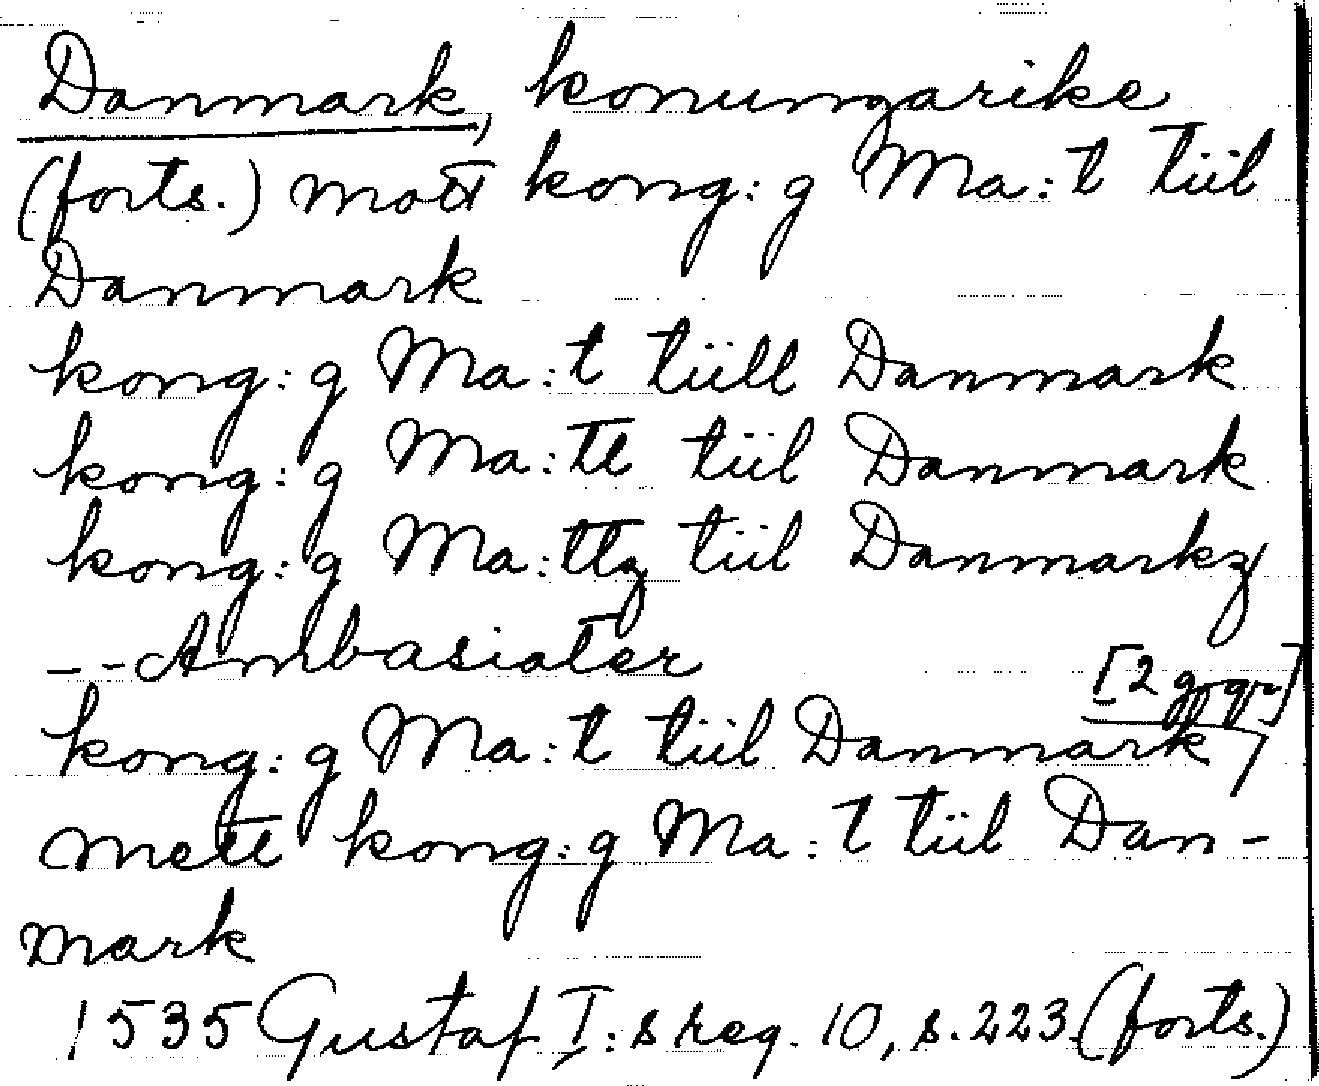 Danmark, konungarike
(forts.) mott kong: g Ma: t tiil
Danmark
kong: g Ma: t tiill Danmark
kong: g Ma: tt tiil Danmark
kong: g Ma: ttz tiil Danmarkz
-- Ambasiater
[2 ggr]
kong: g Ma: t tiil Danmark
mett kong: g Ma: t tiil Dan-
mark
1535 Gustaf I: s reg. 10, s. 223. (forts.)